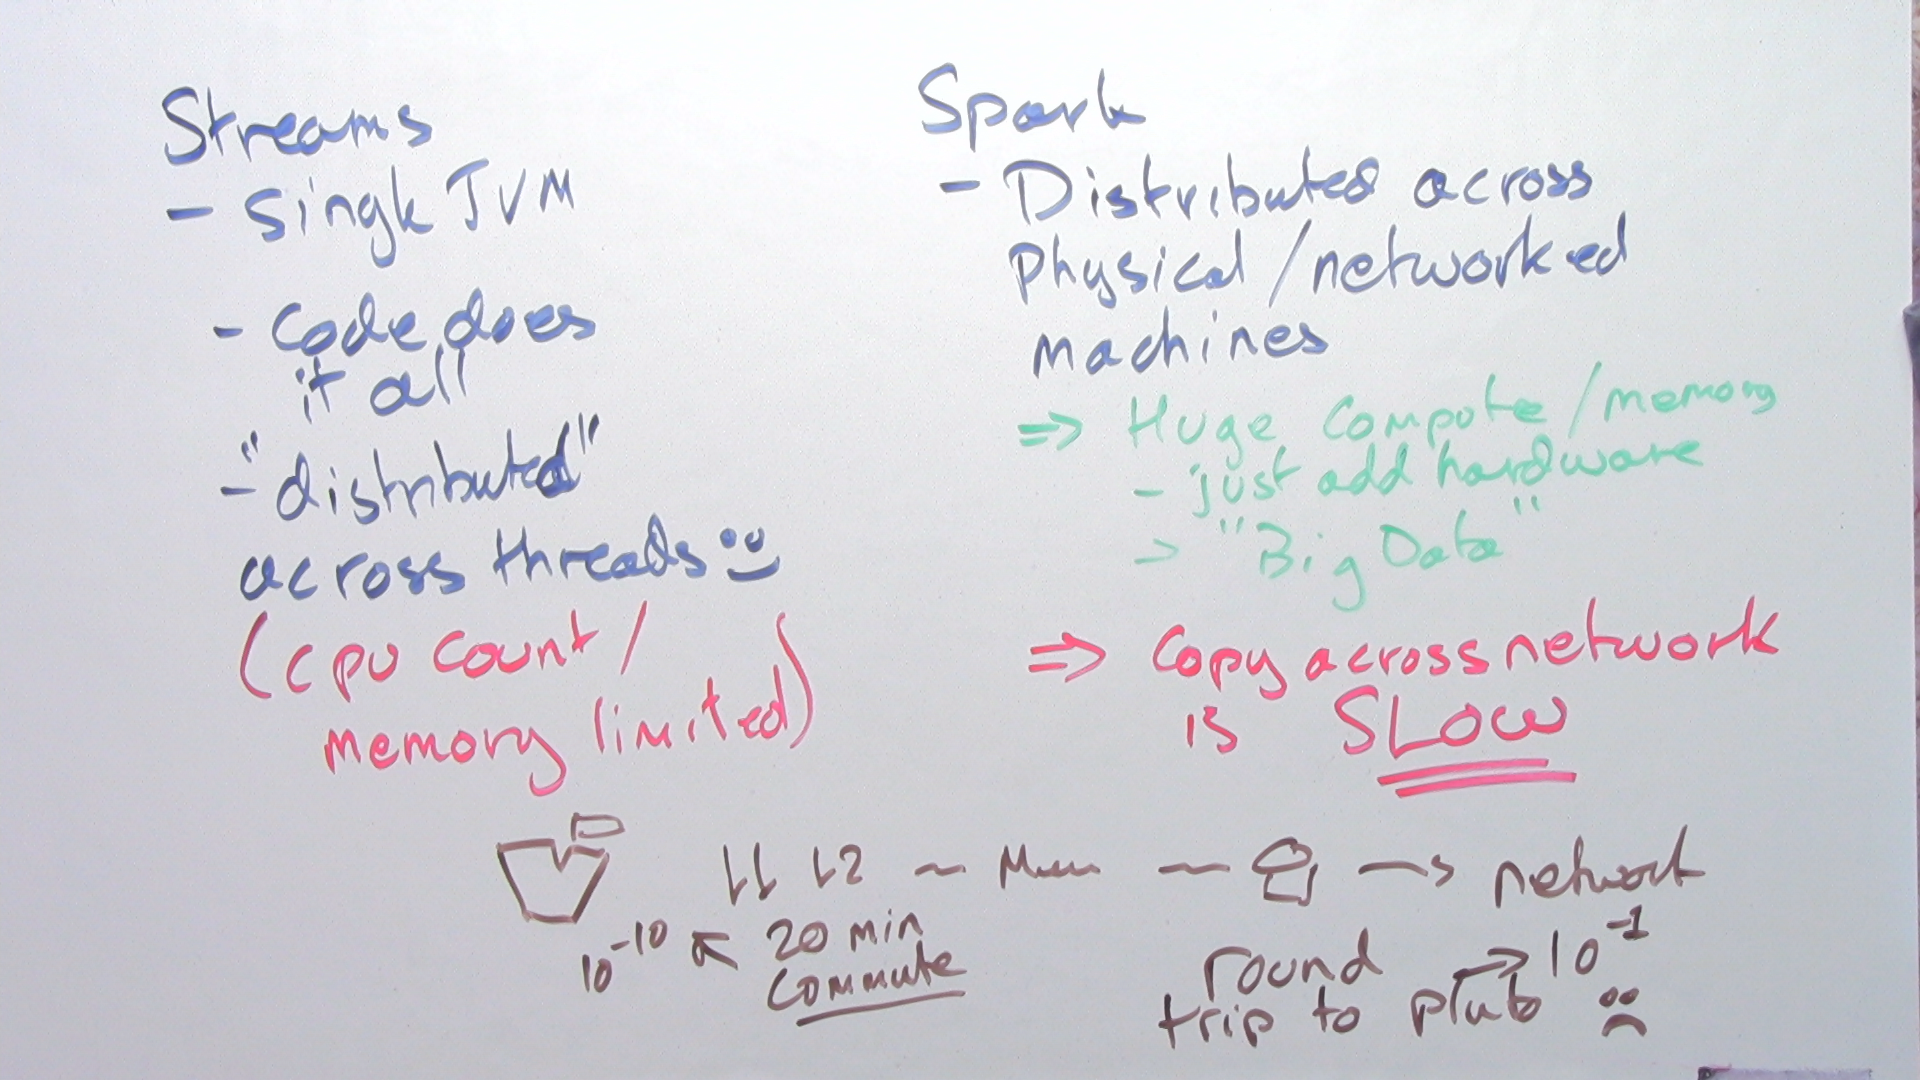 Streams
- Single JVM
- Code does
it all
- "distributed"
across threads
(cpu count/
memory limited)
Spark
- Distributed across
Physical/networked
machines
⇒ Huge Compute/memory
- just add hardware
→ "Big Data"
⇒ Copy across network
is SLOW
L1 L2 ~ Mem — → network
10^-10 ← 20 min
Commute
round → 10^-1
trip to pluto